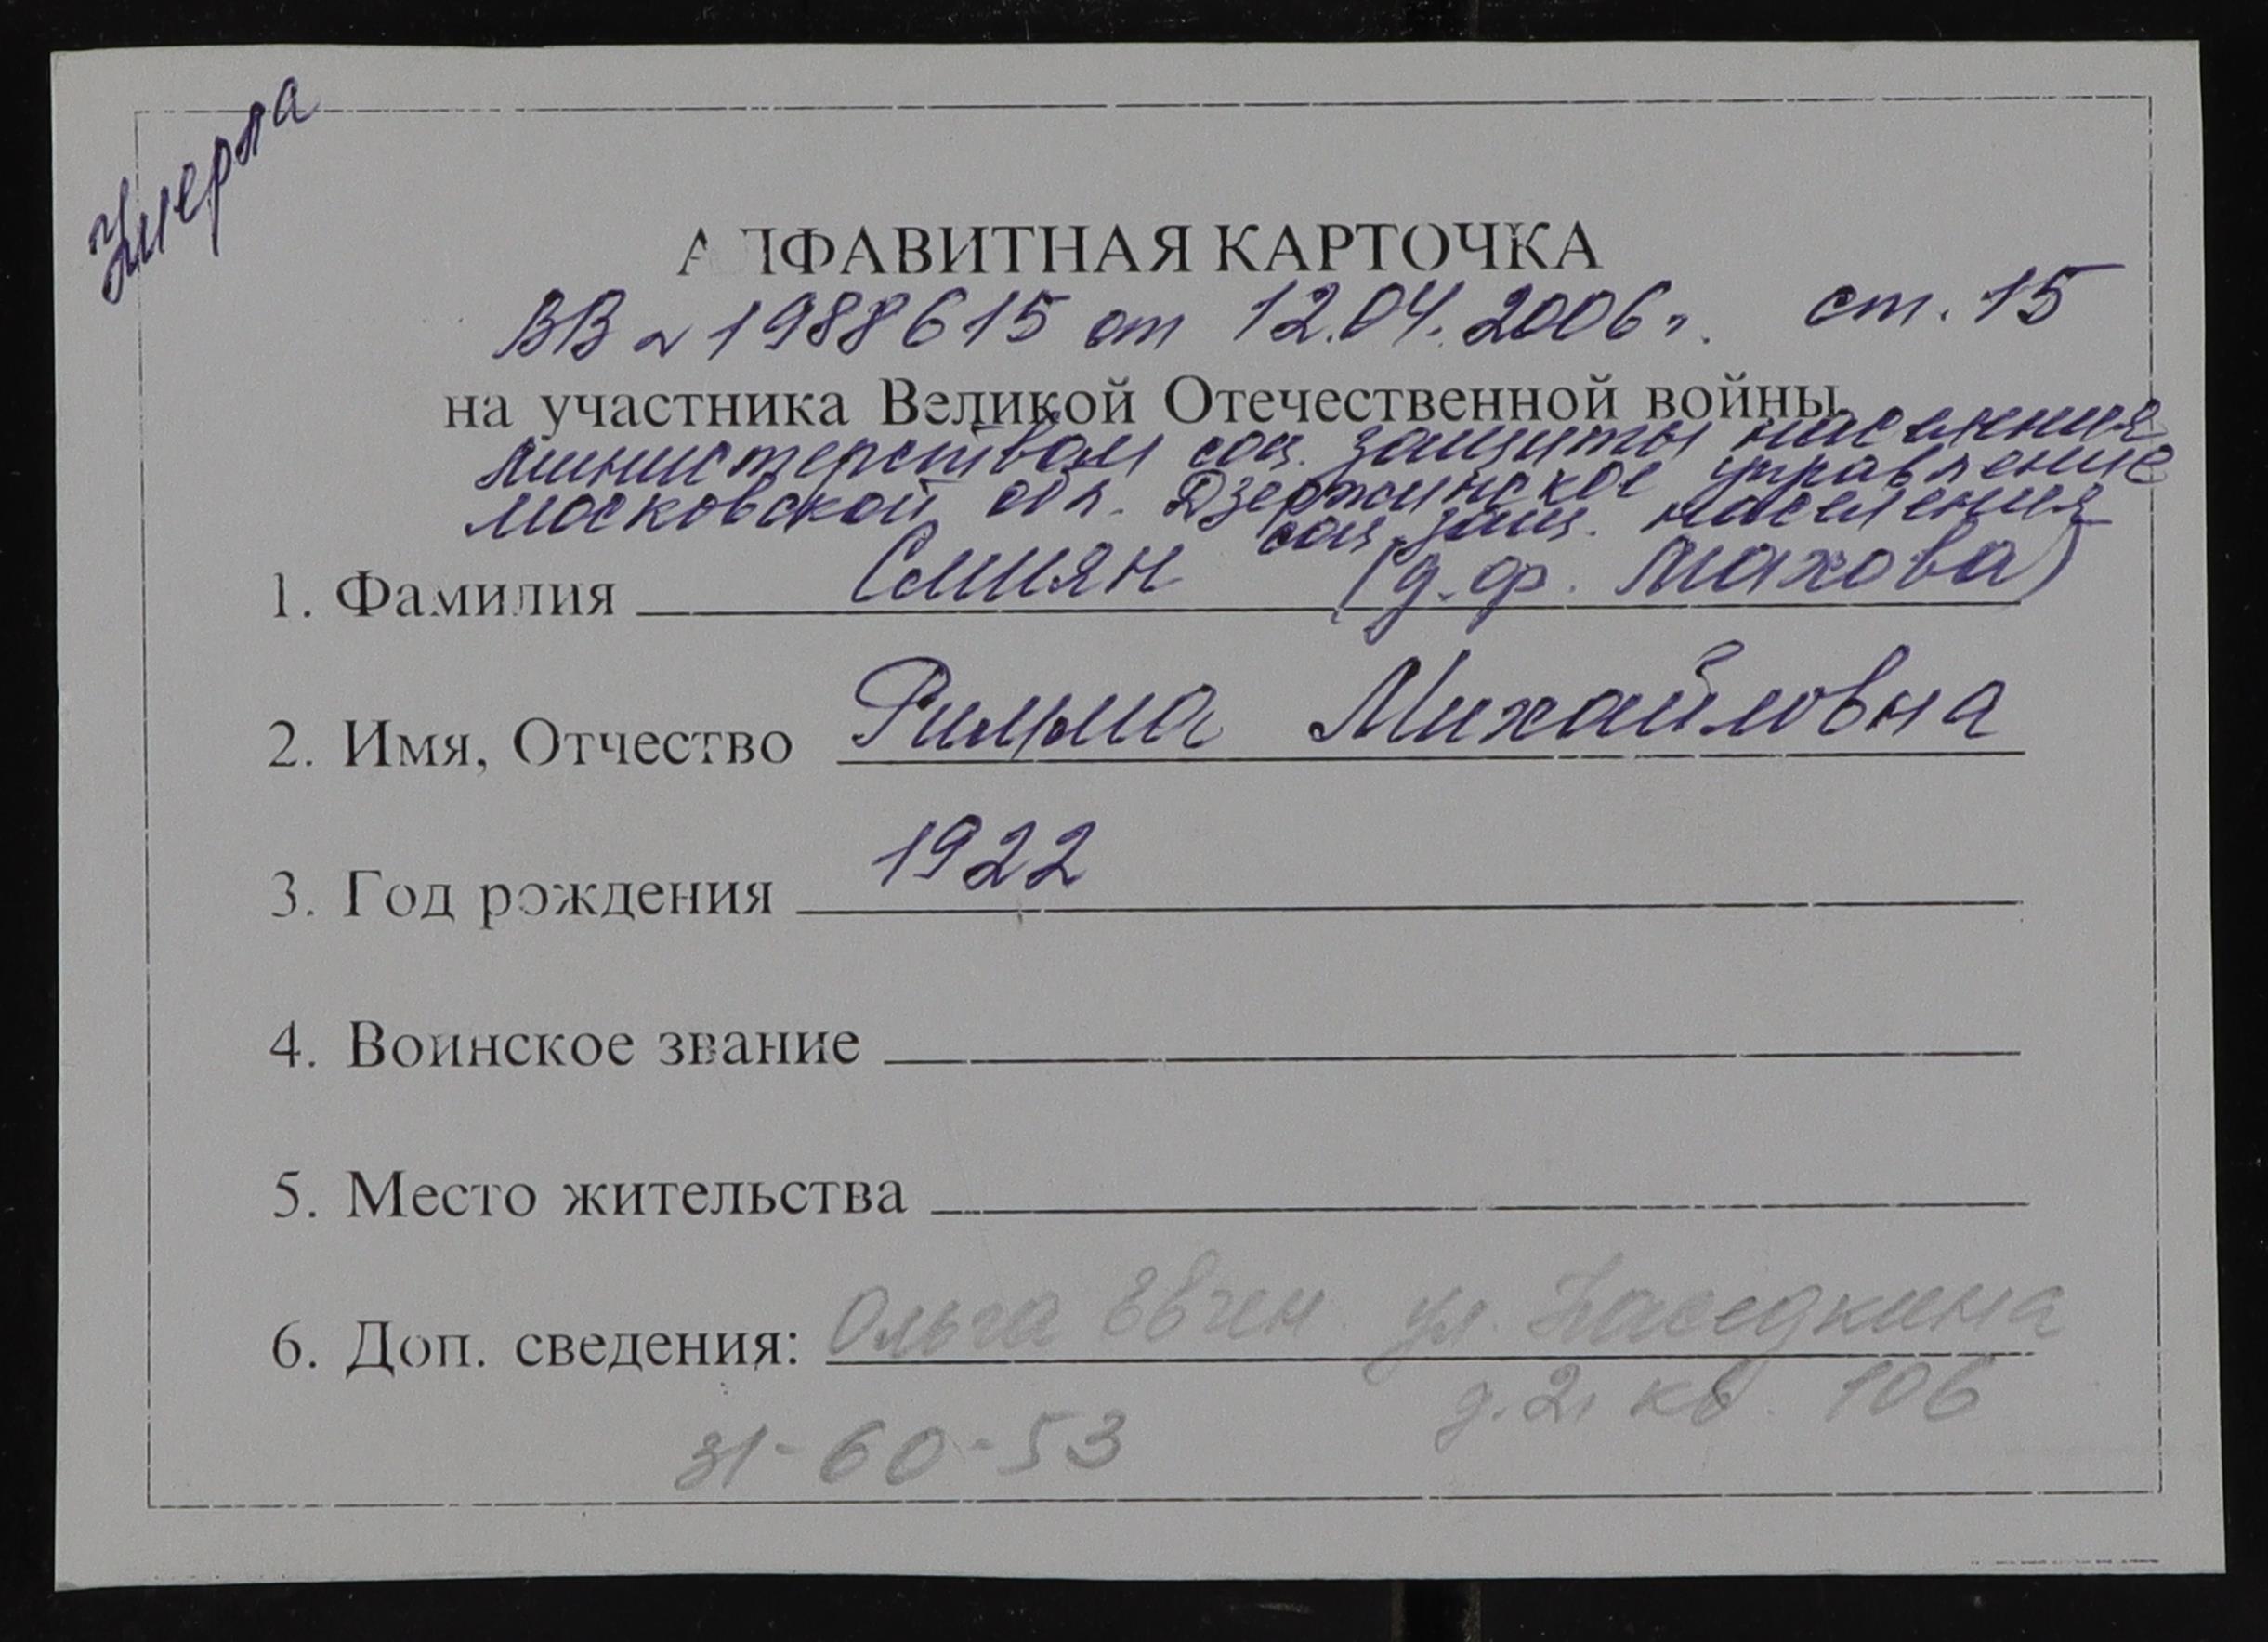 Умерла
АЛФАВИТНАЯ КАРТОЧКА
ВВ № 1988615 от 12.04.2006 г. ст. 15
на участника Великой Отечественной войны
министерством соц. защиты населения
московской обл. Дзержинское управление
соц. защ. населения
1. Фамилия Смиян (д. ф. Махова)
2. Имя, Отчество Римма Михайловна
3. Год рождения 1922
4. Воинское звание
5. Место жительства
6. Доп. сведения: Ольга Евген. ул.
д. 2, кв. 106
31-60-53